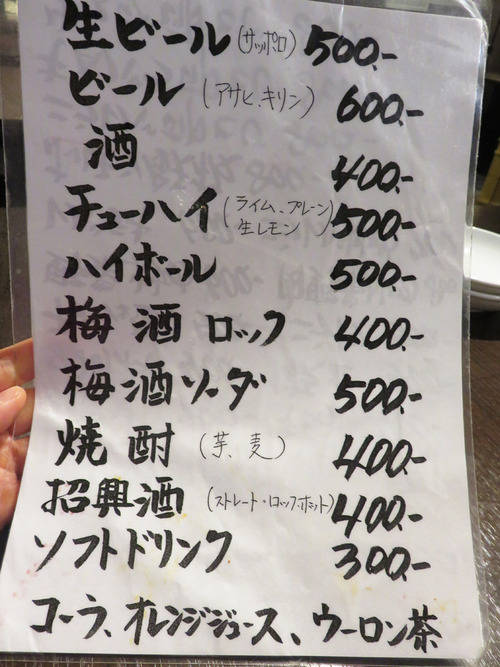 生ビール(サッポロ) 500.-
ビール (アサヒ、キリン) 600.-
酒 400.-
チューハイ(ライム、プレーン 生レモン) 500.-
ハイボール 500.-
梅酒ロック 400.-
梅酒ソーダ 500.-
焼酎 (芋、麦) 400.-
招興酒 (ストレート・ロック・ホット) 400.-
ソフトドリンク 300.-
コーラ、オレンジジュース、ウーロン茶